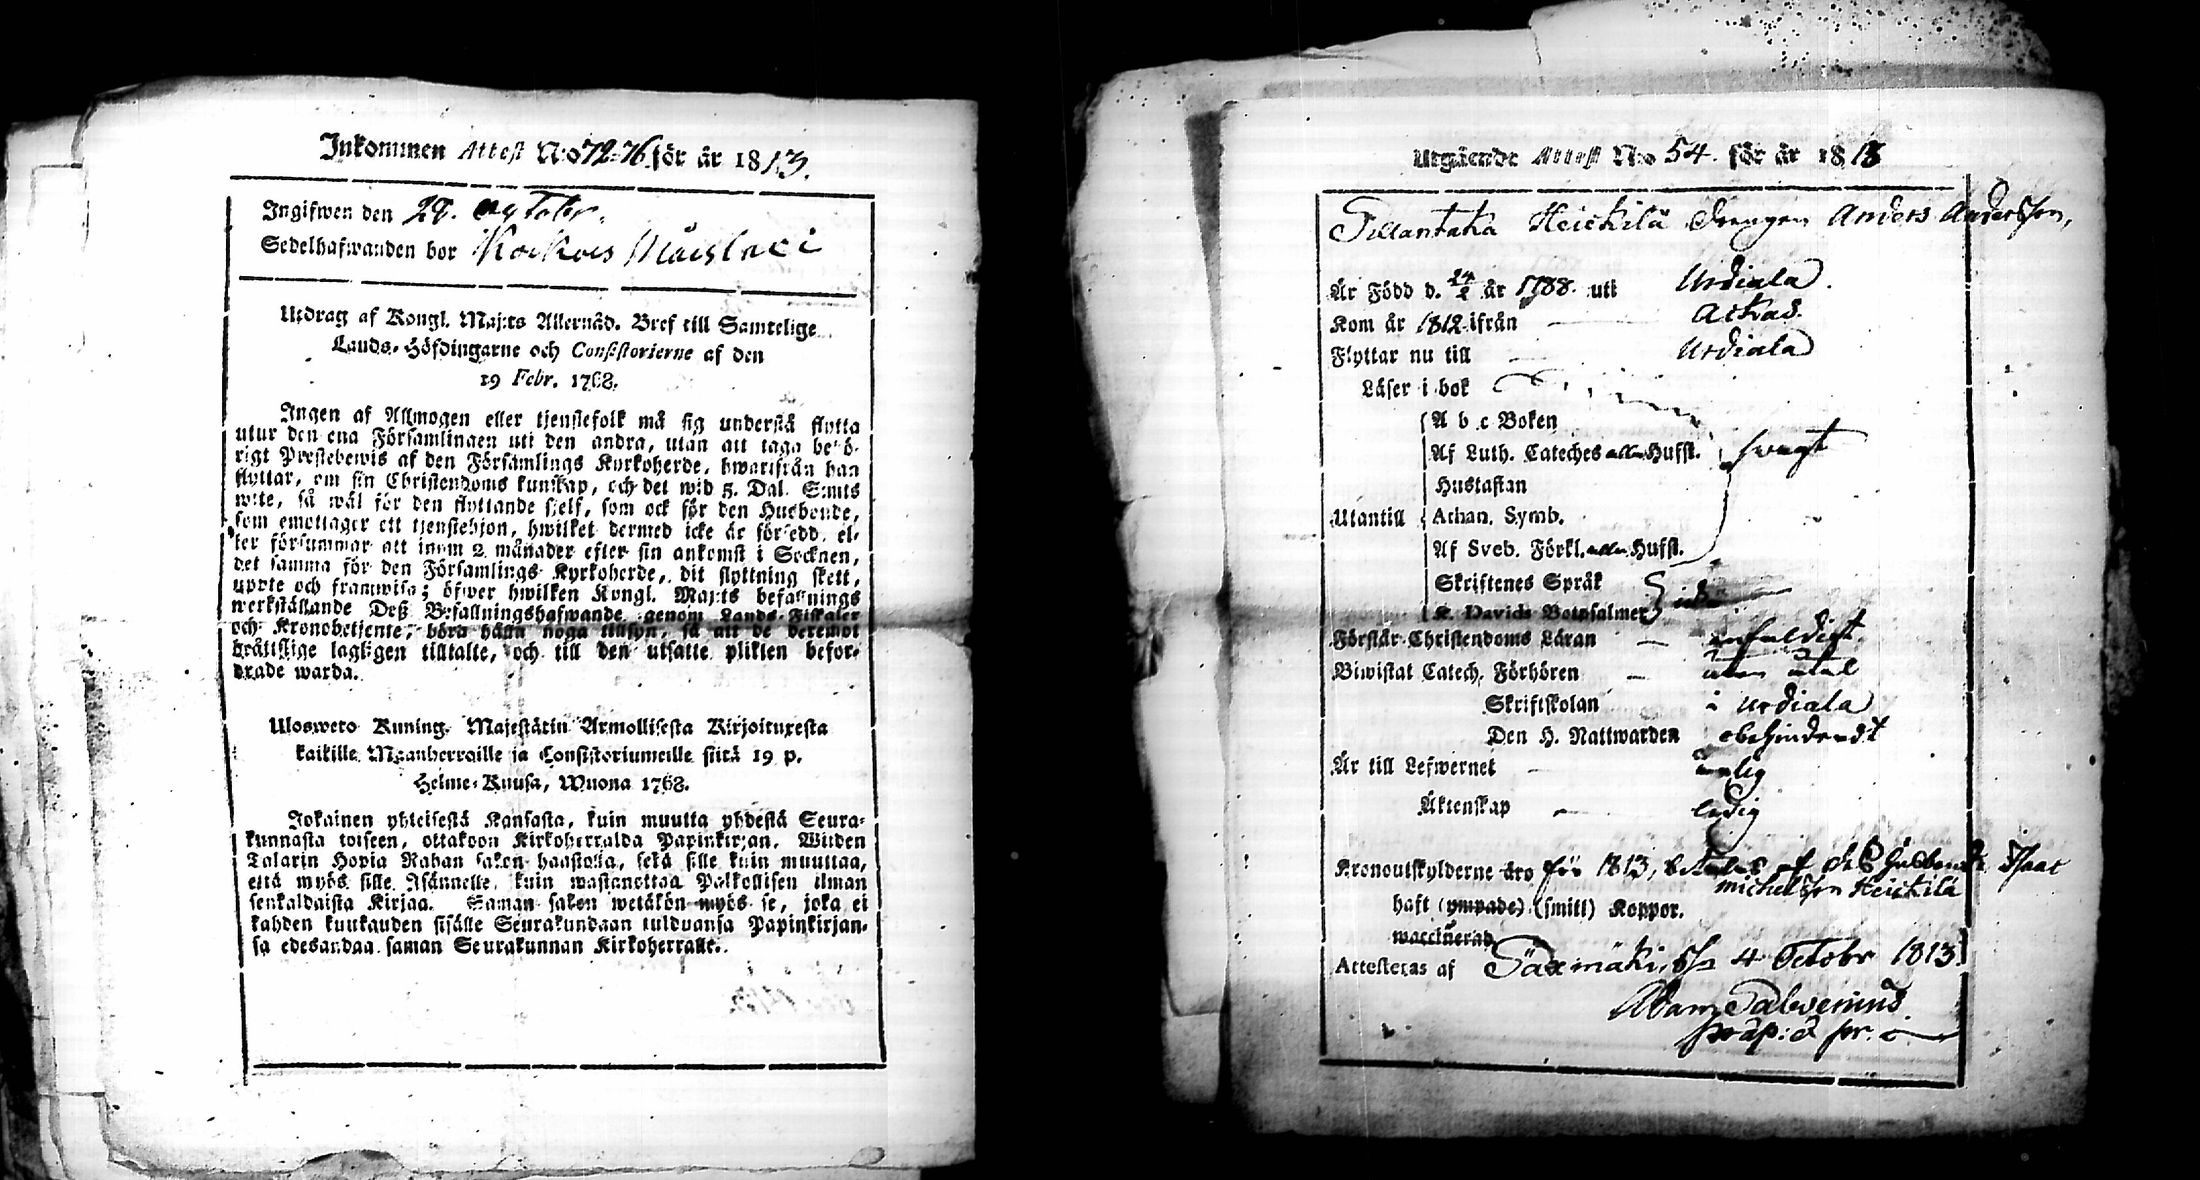 Inkommen Attest N:o 72-76. för år 1813.
Ingifwen den 28. octobr.
Sedelhafwanden bor
Utdrag af Kongl. Maj:ts Allernåd. Bref till Samtelige
Lands-Höfdingarne och Consistorierne af den
19 Febr. 1768.
Ingen af Allmogen eller tjenstefolk må sig understå flytta
utur den ena Församlingen uti den andra, utan att taga behö-
rigt Prestebewis af den Församlings Kyrkoherde, hwarifrån han
flyttar, om sin Christendoms kunskap, och det wid 5. Dal. S:mts
wite, så wäl för den flyttande sjelf, som ock för den Husbonde,
som emottager ett tjenstehjon, hwilket dermed icke är försedd, el-
ler försummar att inom 2 månader efter sin ankomst i Socknen,
det samma för den Församlings Kyrkoherde, dit flyttning skett,
uppte och framwisa; öfwer hwilken Kongl. Maj:ts befallnings
werkställande Deß Befallningshafwande genom Lands-Fiskaler
och Kronobetjente, böra hålla noga tillsyn, så att de deremot
bråttslige lagligen tilltalte, och till den utsatte plikten befor-
drade warda.
Ulosweto Kuning. Majestätin Armollisesta Kirjoituxesta
kaikille Maanherroille ja Consistoriumeille siitä 19 p.
Helme-Kuusa, Wuona 1768.
Jokainen yhteisestä Kansasta, kuin muutta yhdestä Seura-
kunnasta toiseen, ottakoon Kirkoherralda Papinkirjan. Wiiden
Talarin Hopia Rahan sakon haastolla, sekä sille kuin muuttaa,
että myös sille Isännelle, kuin wastanottaa Palkollisen ilman
senkaldaista Kirjaa. Saman sakon wetäkön myös se, joka ei
kahden kuukauden sisälle Seurakundaan tulduansa Papinkirjan-
sa edesandaa saman Seurakunnan Kirkoherralle.
Utgående Attest N:o 54. för år 1813
Tillantaka Heickilä Drengen Anders Andersson,
Är Född d. 24/2 år 1788. uti Urdiala.
Kom år 1812 ifrån Ackas.
Flyttar nu till Urdiala
Läser i bok
A b c Boken
Af Luth. Cateches eller Hufst. swagt
Hustaflan
Utantill Athan. Symb.
Af Sveb. Förkl. eller Hufst.
Skriftenes Språk
K. Davids Botpsalmer icke
Förstår Christendoms Läran enfaldigt
Biwistat Catech. Förhören utan åtal
Skriftskolan i Urdiala
Den H. Nattwarden obehindradt
Är till Lefwernet ärlig
Äktenskap ledig
Kronoutskylderne äro för 1813, betalas af dess husbonde Isaac
michelsson Heickilä
haft (ympade) (smitt) Koppor.
waccinerad
Attesteras af Säxmäki, d. 4 Octobr 1813.
Adam Salvenius.
præp: & p.